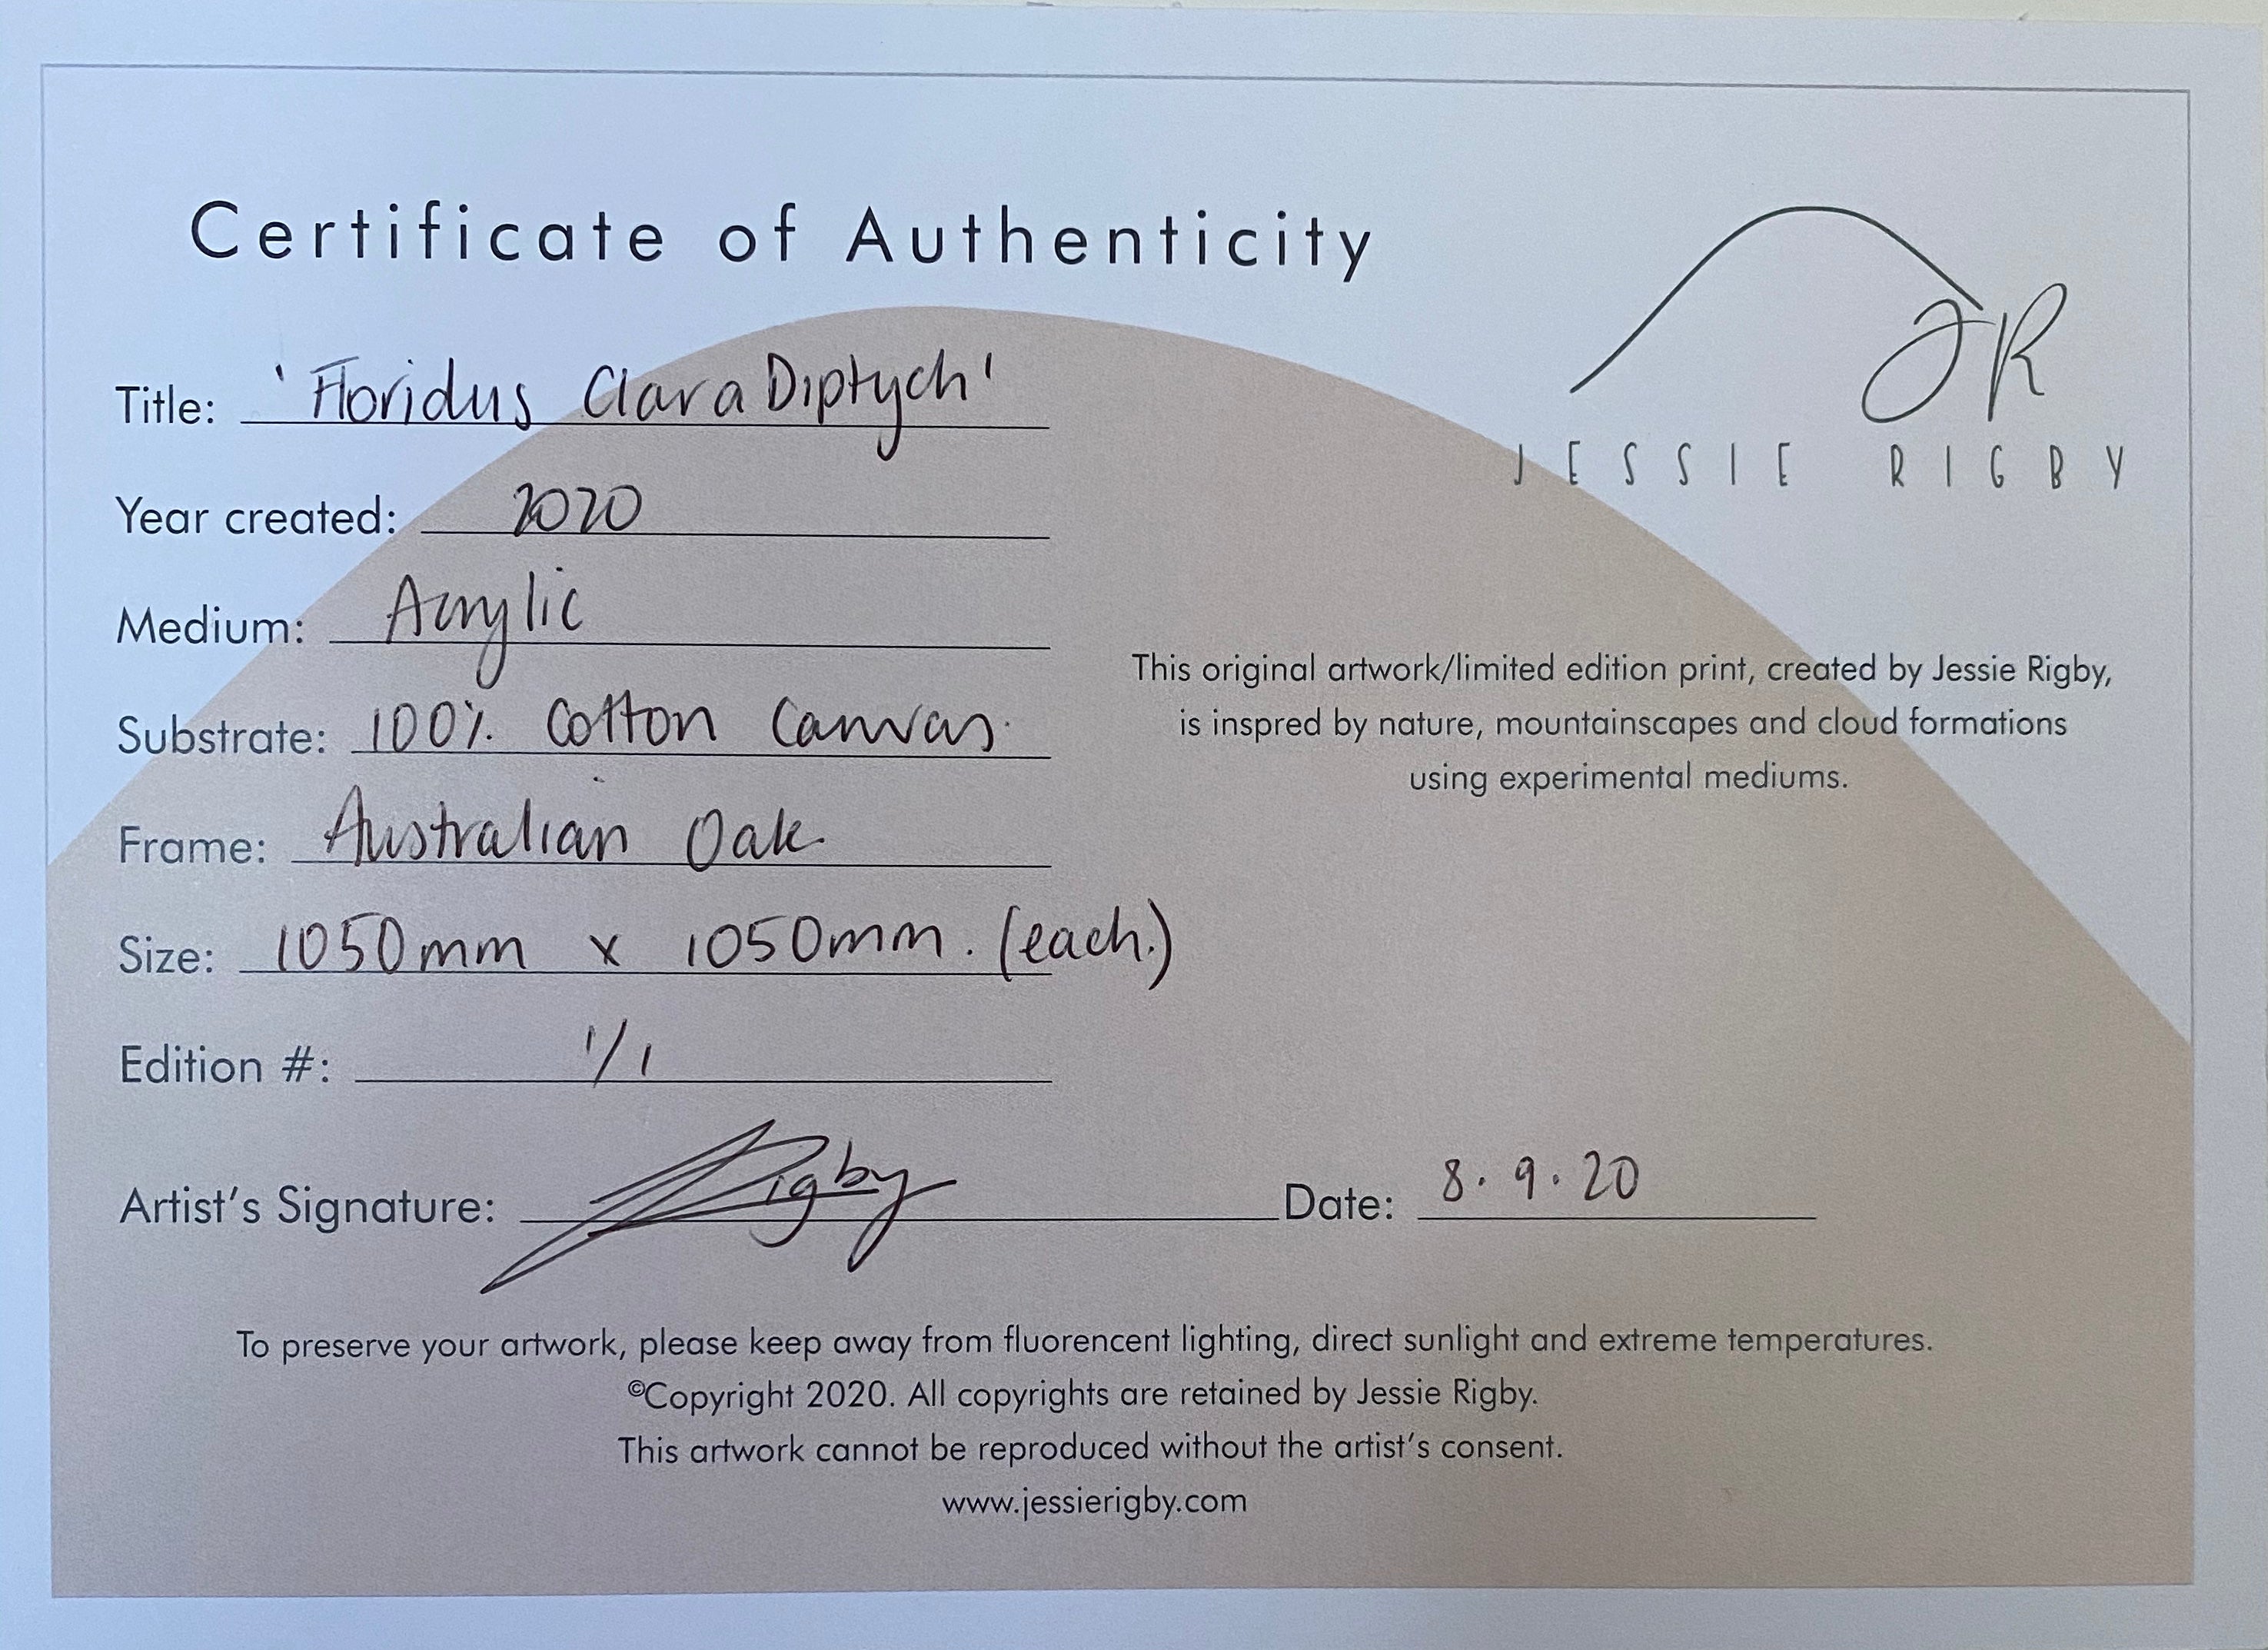 Certificate of Authenticity
JR
JESSIE RIGBY
Title: 'Floridus Clara Diptych'
Year created: 2020
Medium: Acrylic
Substrate: 100% Cotton Canvas.
Frame: Australian Oak
Size: 1050mm x 1050mm. (each.)
Edition #: 1/1
This original artwork/limited edition print, created by Jessie Rigby,
is inspred by nature, mountainscapes and cloud formations
using experimental mediums.
Artist's Signature: Rigby Date: 8.9.20
To preserve your artwork, please keep away from fluorencent lighting, direct sunlight and extreme temperatures.
©Copyright 2020. All copyrights are retained by Jessie Rigby.
This artwork cannot be reproduced without the artist's consent.
www.jessierigby.com